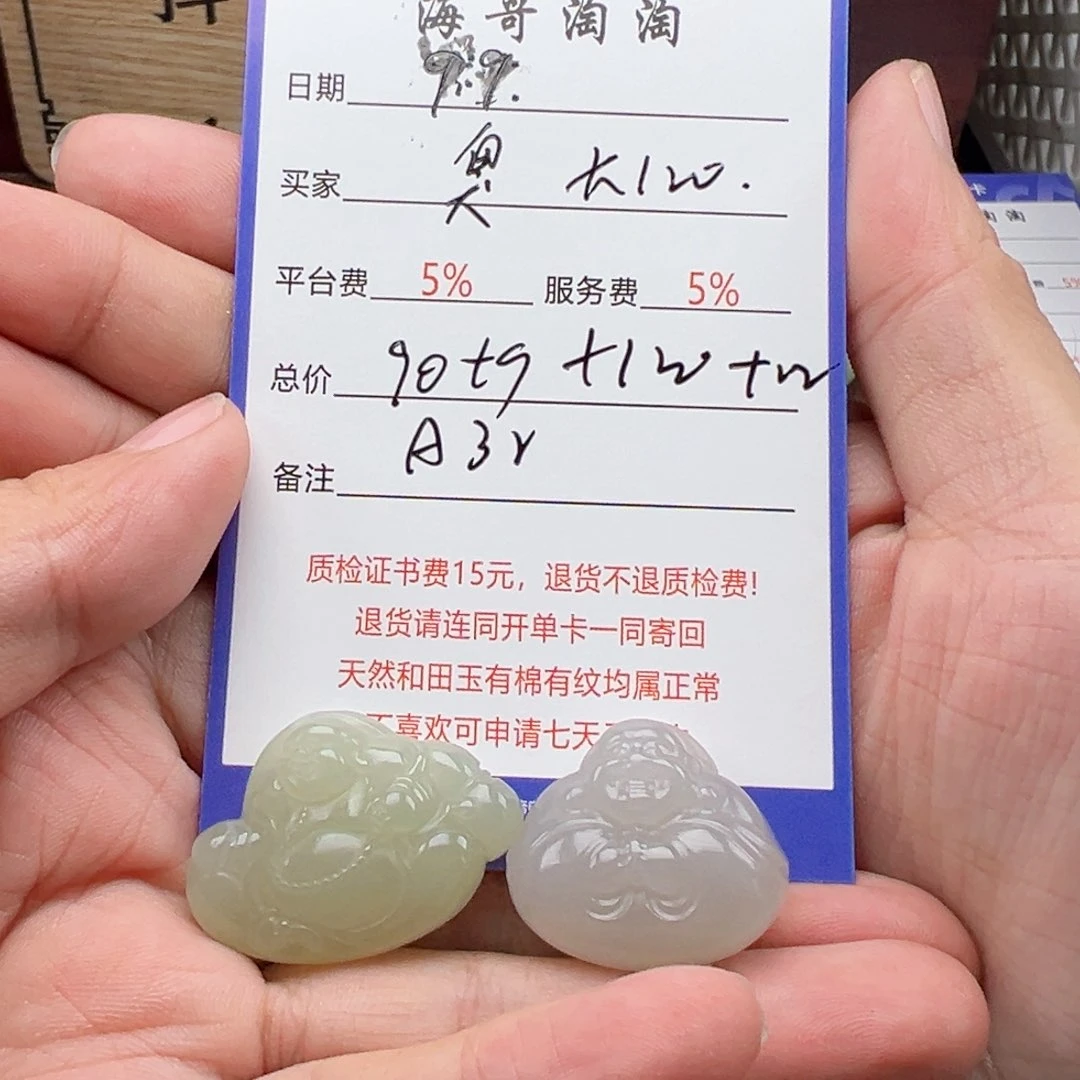 海哥淘淘
日期 9.9.
买家
平台费 5% 服务费 5%
总价 90+9
备注 A3Y
质检证书费15元，退货不退质检费！
退货请连同开单卡一同寄回
天然和田玉有棉有纹均属正常
喜欢可申请七天